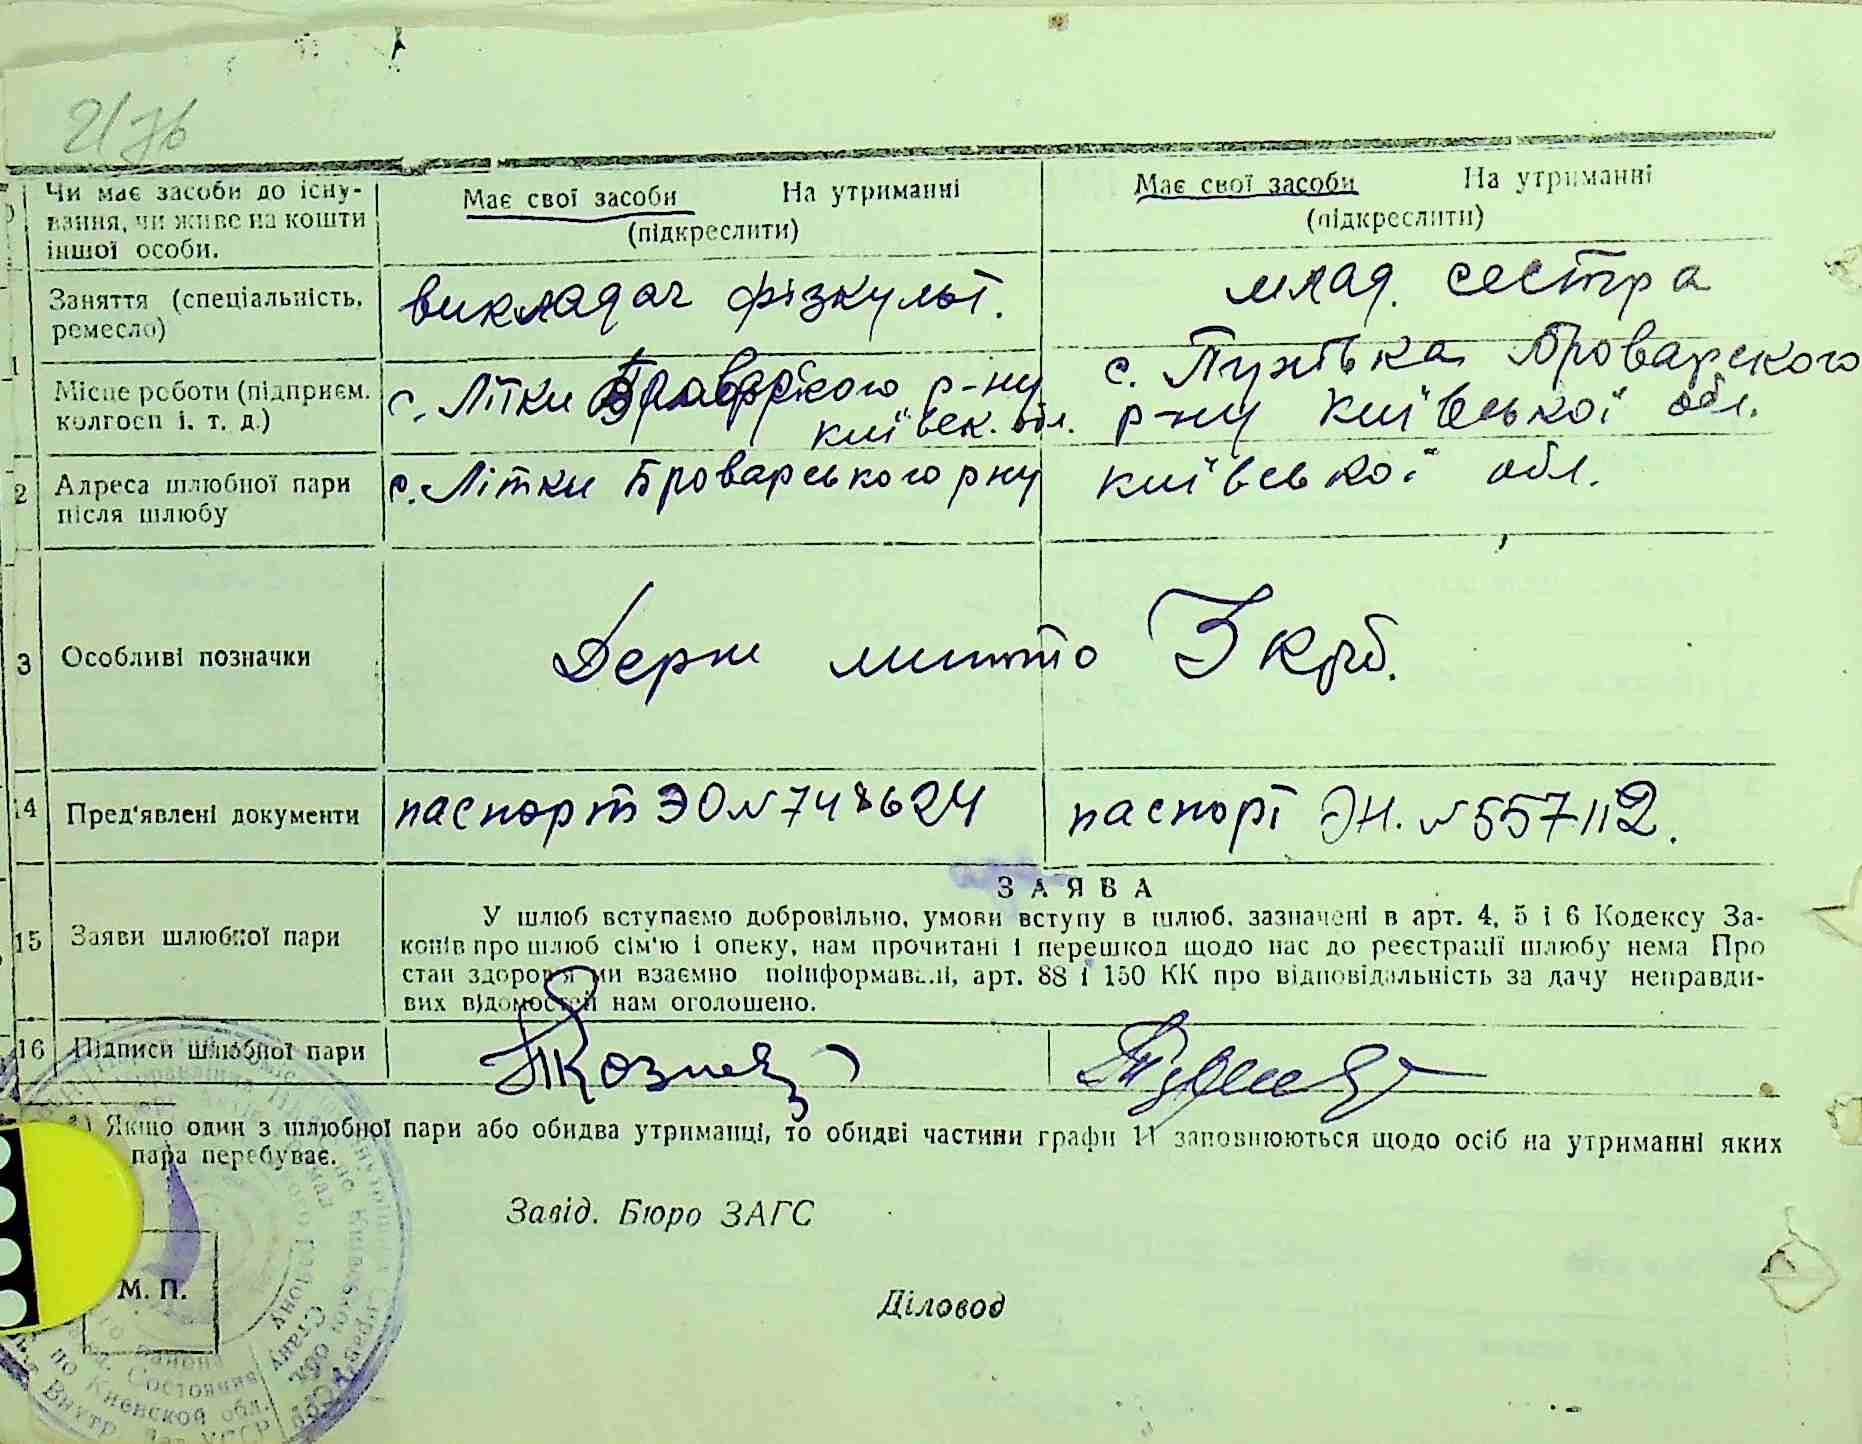 2176
Чи має засоби до існу-
вання, чи живе на кошти
іншої особи.
Має свої засоби На утриманні
(підкреслити)
Має свої засоби На утриманні
(підкреслити)
Заняття (спеціальність,
ремесло)
викладач фізкульт.
млад. сестра
1
Місце роботи (підприєм.
колгосп і. т. д.)
с. Літки Броварского р-ну
київськ. обл.
с. Пухівка Броварского
р-ну київської обл.
2
Адреса шлюбної пари
після шлюбу
с. Літки Броварського рну київської обл.
3
Особливі позначки
Держ мито 3 крб.
14
Пред'явлені документи
паспорт ЭО № 748624
паспорт ЭН. № 557112.
15
Заяви шлюбної пари
ЗАЯВА
У шлюб вступаємо добровільно, умови вступу в шлюб, зазначені в арт. 4, 5 і 6 Кодексу За-
конів про шлюб сім'ю і опеку, нам прочитані і перешкод щодо нас до реєстрації шлюбу нема Про
стан здоров'я ми взаємно поінформавалі, арт. 88 і 150 КК про відповідальність за дачу неправди-
вих відомостей нам оголошено.
16
Підписи шлюбної пари
*) Якщо один з шлюбної пари або обидва утриманці, то обидві частини графи 11 заповнюються щодо осіб на утриманні яких
пара перебуває.
Завід. Бюро ЗАГС
М. П.
Діловод
района
Состояния
по Киевской обл.
Внутр. Дел УССР